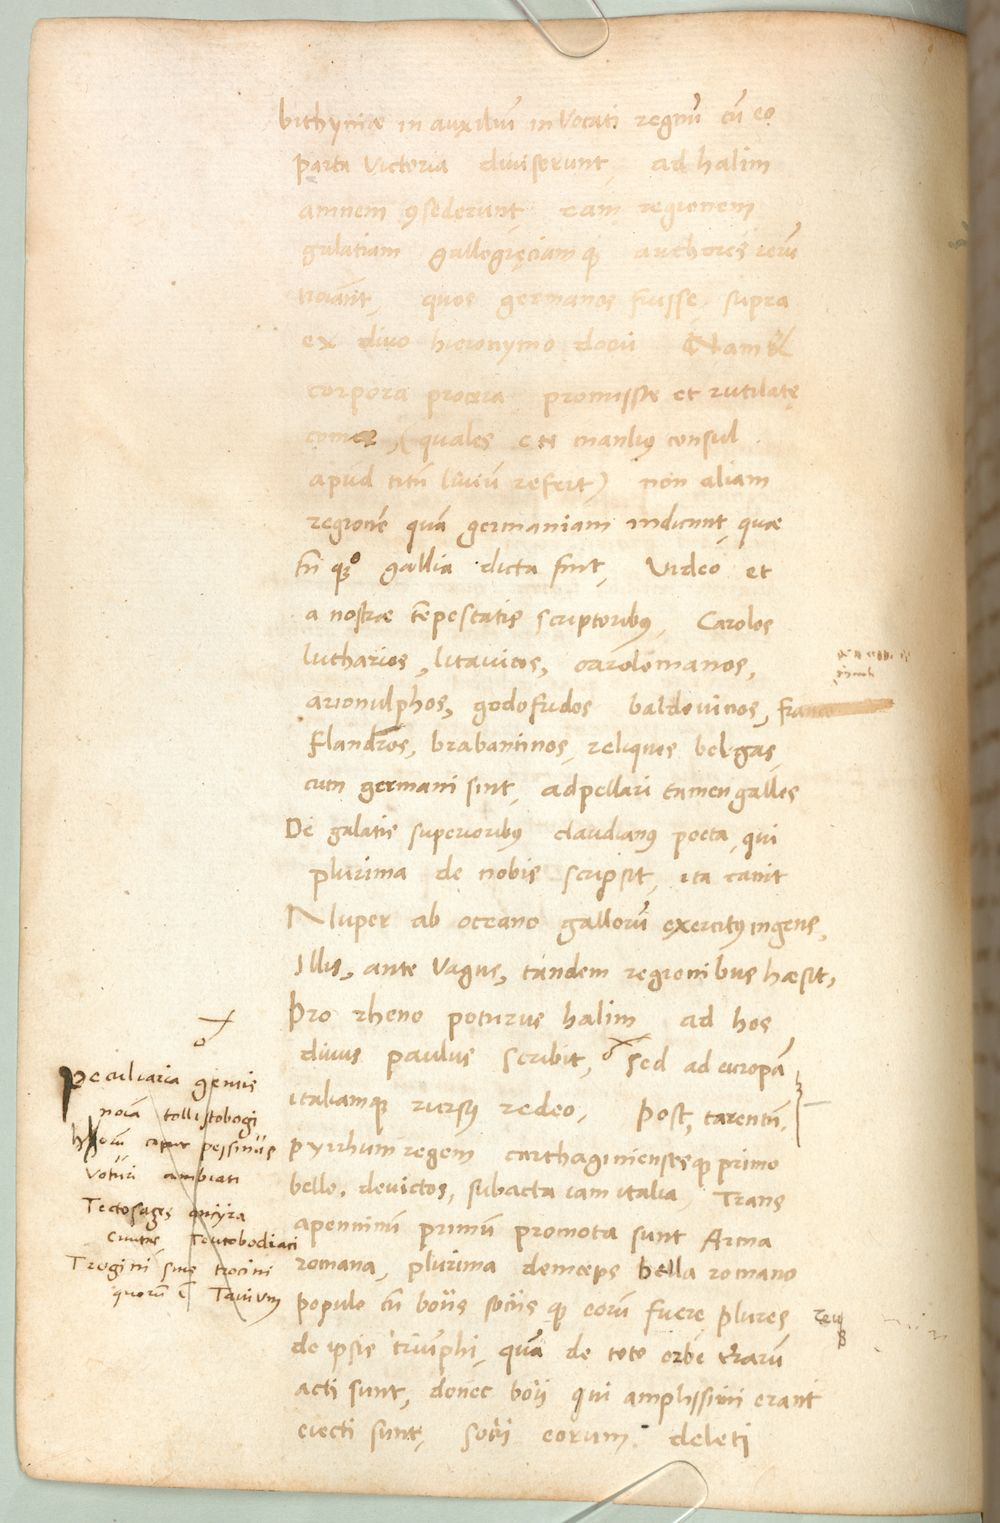 bithyniæ in auxiliū invocati regnū cū eo
parta victoria diviserunt, ad halim
amnem ꝯsederunt eam regionem
galatiam gallogręciamq; authores rerū
noīāt, quos germanos fuisse supra
ex divo hieronymo docui Nam &
corpora procera promissæ et rutilatę
comæ, (quales cn manlius consul
apud titū liviū refert) non aliam
regionē quā germaniam indicunt, quæ
gallia dicta sint, Video et
a nostræ tēpestatis scriptoribus, Carolos
lutharios, litavicos, carolomanos,
arionulphos, godofridos baldovinos, franc
Flandros, brabantinos, reliquos belgas
cum germani sint, adpellari tamen gallos
De galatis superioribus claudianus poeta, qui
plurima de nobis scripsit, ita canit
Nuper ab oceano gallorū exercitus ingens,
Illis, ante vagus, tandem regionibus hæsit,
Pro rheno poturus halim, ad hos
divus paulus scribit, Sed ad europā
italiamq; rursus redeo, Post, tarentū,
pyrrhum regem carthaginiensesq; primo
bello, devictos, subacta iam italia, Trans
apenninū primū promota sunt Arma
romana, plurima deinceps bella romano
populo cū boiis sociisq; eorū fuere, plures
de ipsis triūphi, quā de toto orbe t̄rarū
acti sunt, donec boii qui amplissimi erant
eiecti sunt, Socii eorum deleti
Peculiaria gentis
noīa tollistobogi
horū caput pessinūs
Votūri ambiati
Tectosages ancyra
Civitas Teutobodiaci
Trogini sive trocini
quorū ē Tavium